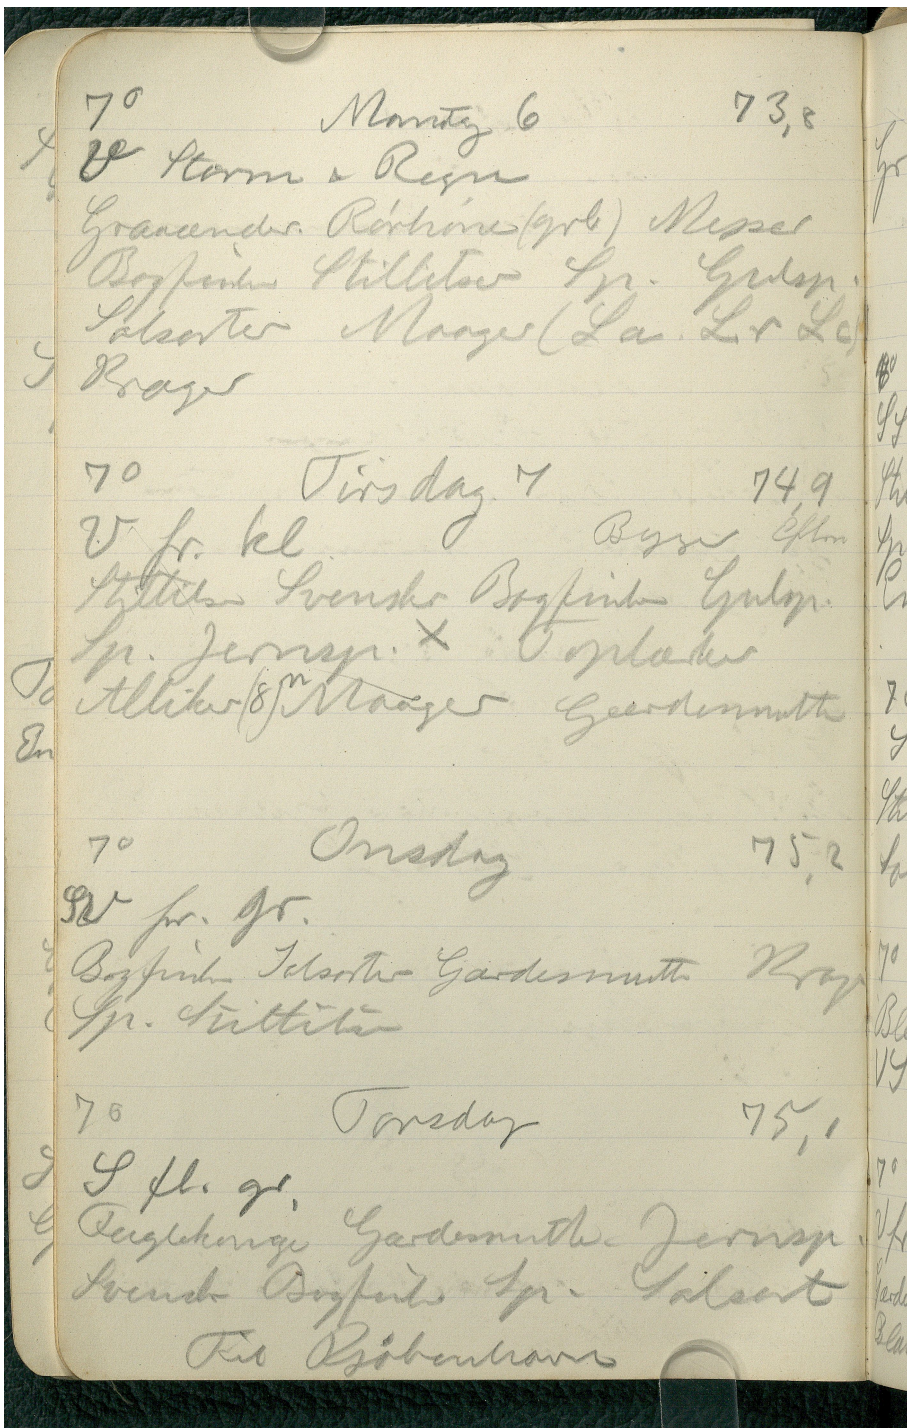 7° Mandag 6 73,8
V Storm & Regn
Graaænder. Rörhöne (grb) Mejser
Bogfinke Stillitser Sp. Gulsp.
Solsorter Maager (La. Lr Lc)
Krager
7° Tirsdag 7 74,9
V fr. kl Byger Efterm
Stillitse Svenske Bogfinke Gulsp.
Sp. Jernsp. X Toplærker
Alliker (8) Maager Gærdesmutte
7° Onsdag 75,2
SV fr. gr.
Bogfinke Solsorter Gærdesmutte Krage
Sp. Stillitse
7° Torsdag 75,1
S fl. gr.
Fuglekonge Gærdesmutte Jernsp.
Svenske Bogfinke Sp. Solsort
Til Kjöbenhavn